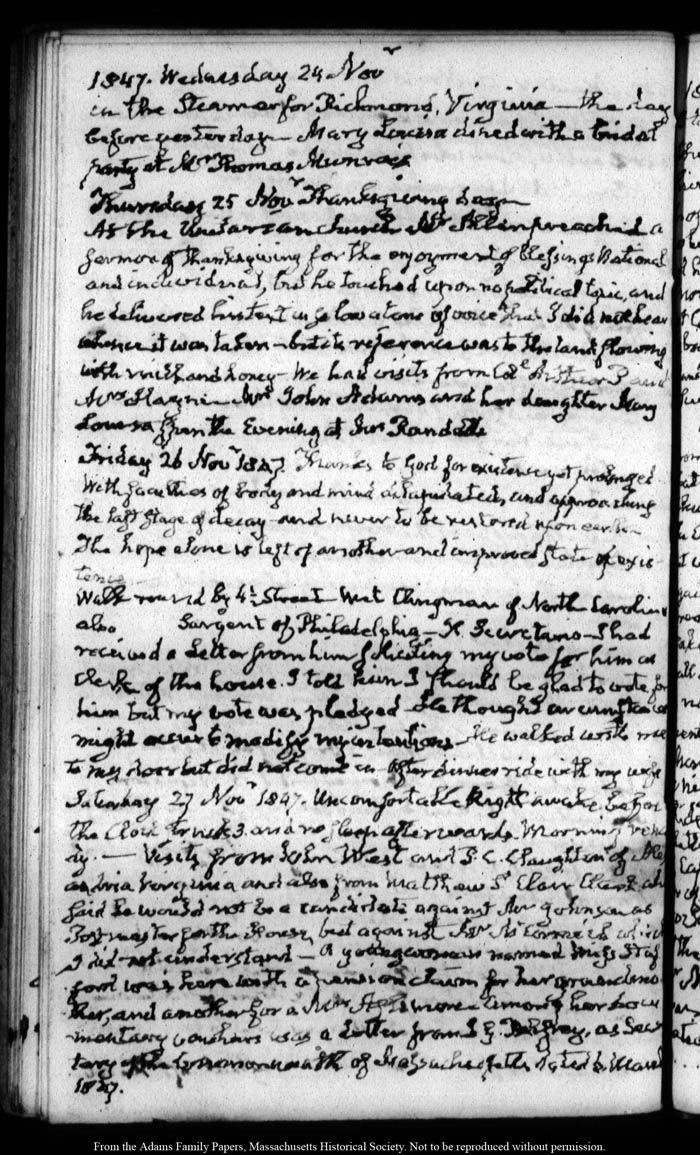 1847. Wednesday 24 Novr
in the Steamer for Richmond, Virginia — the day
before yesterday — Mary Louisa dined with a bridal
party at Mr Thomas Munroe's
Thursday 25 Novr Thanksgiving day —
At the Unitarian church Mr Allen preached a
sermon of Thanksgiving for the enjoyment of blessings National
and individual, but he touched upon no political topic, and
he delivered his text in so low a tone of voice that I did not hear
whence it was taken — but its reference was to the land flowing
with milk and honey — We had visits from Col.
Mrs John Adams and her daughter Mary
Louisa the Evening at Mrs
Friday 26 Novr 1847. Thanks to God for existence yet prolonged
with faculties of body and mind dilapidated, and approaching
the last stage of decay — and never to be restored upon earth
The hope alone is left of another and improved state of exis-
tence —
Walk round by 4½ Street — met Clingman of North Carolina
also Sargent of Philadelphia — I had
received a Letter from him soliciting my vote for him as
Clerk of the house. I told him I should be glad to vote for
him but my vote was pledged He thought circumstances
might occur to modify my intentions — He walked with me
to my door but did not come in — After dinner ride with my wife
Saturday 27 Novr 1847. Uncomfortable Night awake before
the Clock struck 3. and no sleep afterwards. Morning
— Visits from John West and of Alex
andria Virginia and also from Matthew St Clair Clarke who
said he would not be a candidate against Mr Johnson as
Postmaster for the House, but against Mr which
I did not understand — A young woman named Miss
was here with a pension claim for her grandmo
ther, and another for a Mrs Among her docu
mentary vouchers was a Letter from J. G. Palfrey, as Secre
tary of the Commonwealth of Massachusetts dated March
1847.
From the Adams Family Papers, Massachusetts Historical Society. Not to be reproduced without permission.